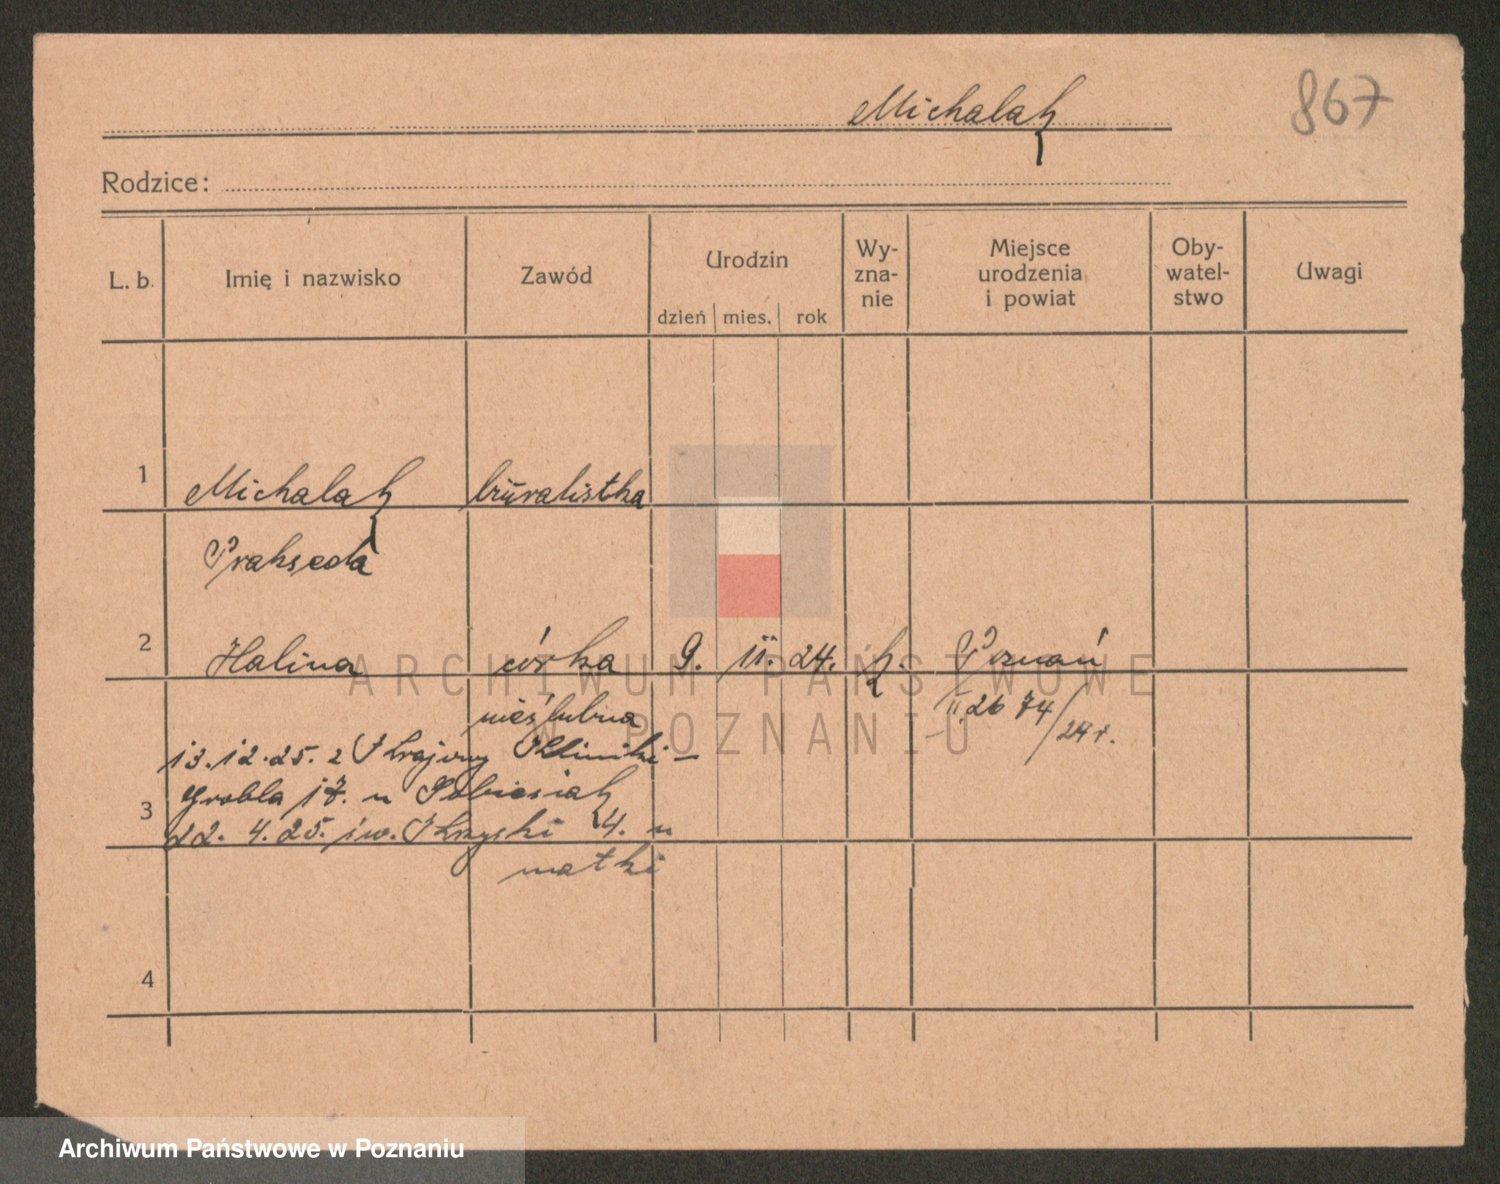 Michalak
867
Rodzice:
L. b. Imię i nazwisko Zawód Urodzin dzień mies. rok Wy-zna-nie Miejsce urodzenia i powiat Oby-watel-stwo Uwagi
1 Michalak biuralistka
Prakseda
2 Halina córka 9. II. 24. k. Poznań
nieślubna II 26 74/24 r.
13.12.25. z Krajowy Kliniki –
3 Grobla 17. u Sobiesiak
22. 4. 25. św. 4. u
matki
4
ARCHIWUM PAŃSTWOWE
W POZNANIU
Archiwum Państwowe w Poznaniu